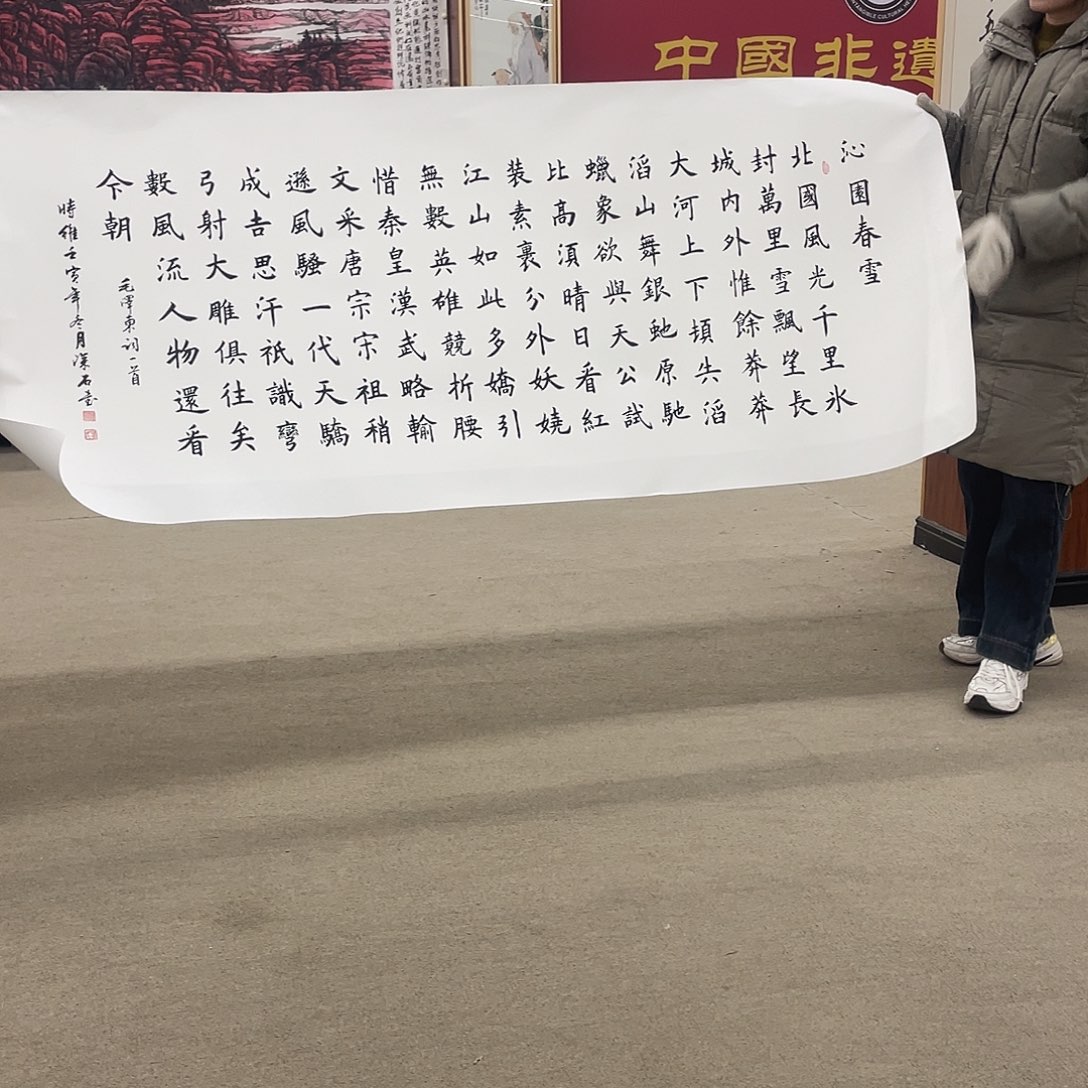 中國非遺
沁園春雪
北國風光千里氷
封萬里雪飄望長
城内外惟餘莽莽
大河上下頓失滔
滔山舞銀虵原馳
蠟象欲與天公試
比高須晴日看紅
装素裹分外妖娆
江山如此多嬌引
無數英雄競折腰
惜秦皇漢武略輸
文采唐宗宋祖稍
遜風騷一代天驕
成吉思汗祇識彎
弓射大雕俱往矣
數風流人物還看
今朝
毛澤東詞一首
時維壬寅年冬月